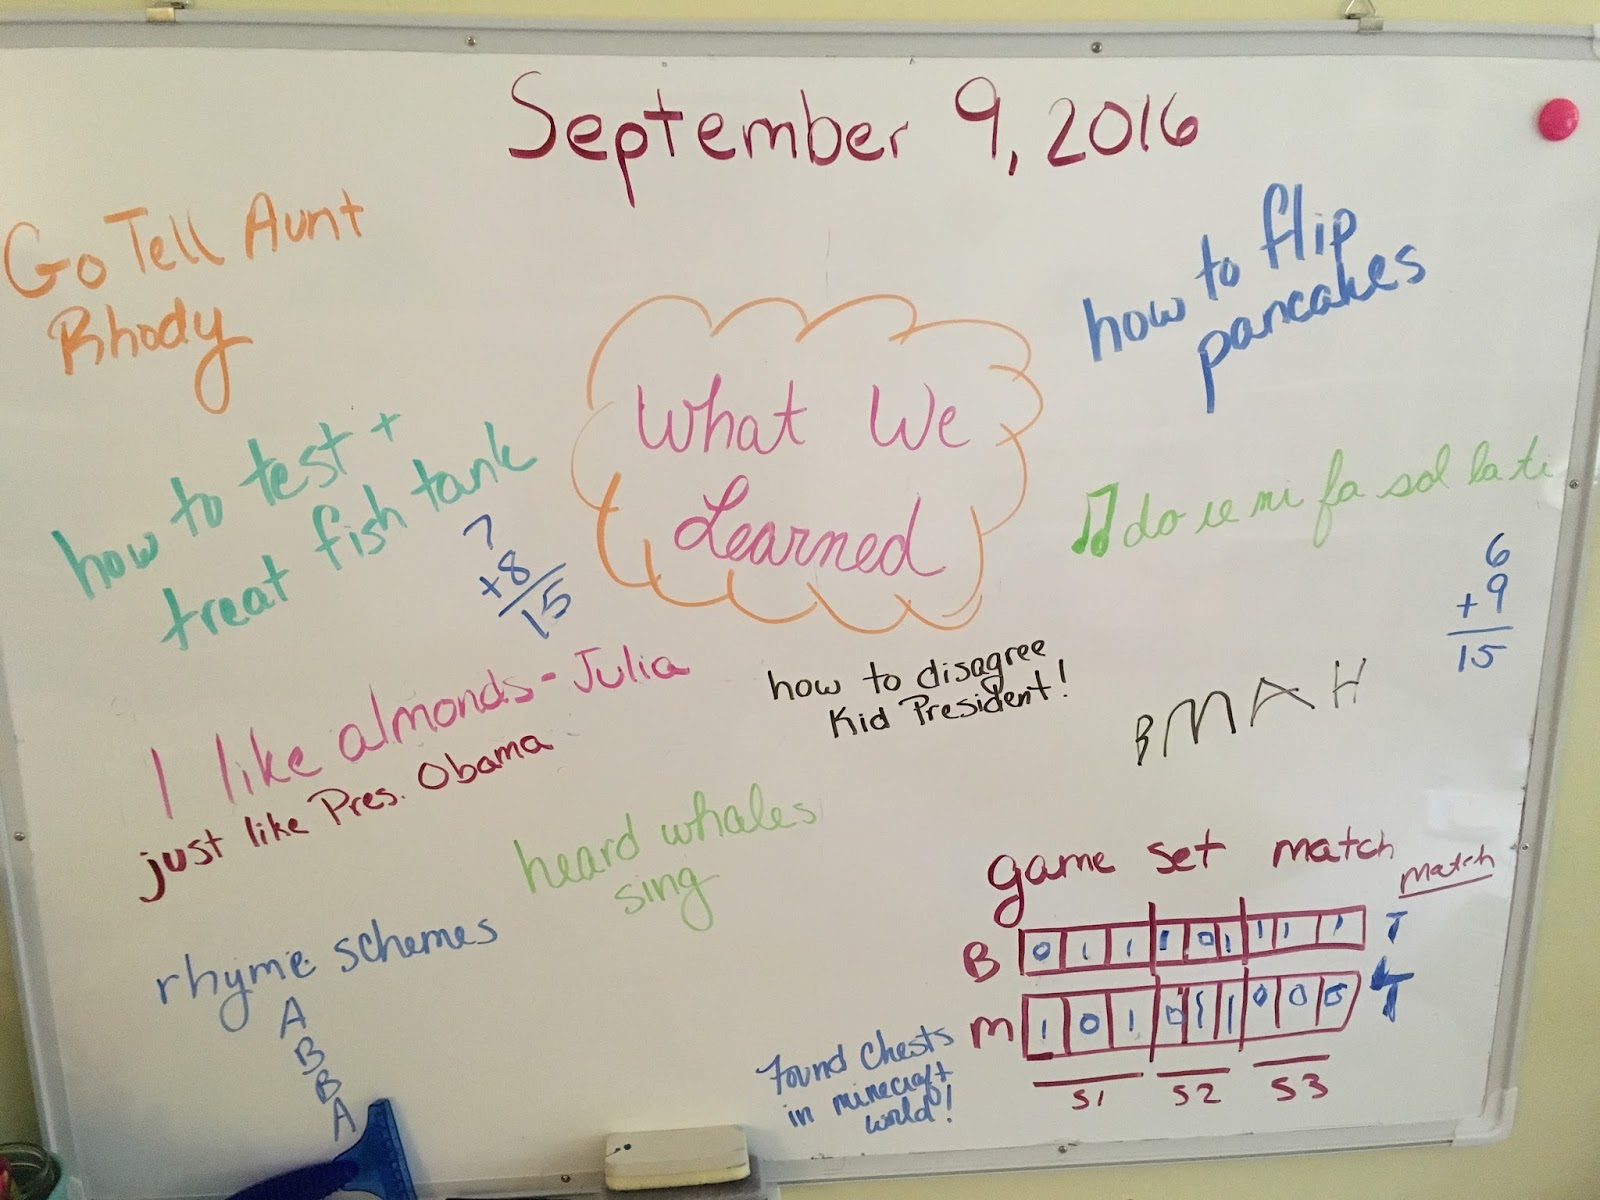 September 9, 2016
Go Tell Aunt
Rhody
how to flip
pancakes
What We
Learned
how to test +
treat fish tank
7
+8
15
do re mi fa sol la ti
6
+9
15
I like almonds - Julia
just like Pres. Obama
how to disagree
Kid President!
BMAH
heard whales
sing
game set match
match
B 0 1 1 1 0 1 1 1 1 T
M 1 0 1 0 1 1 0 0 0 T
S1 S2 S3
rhyme schemes
A
B
B
A
Found Chests
in minecraft
world!